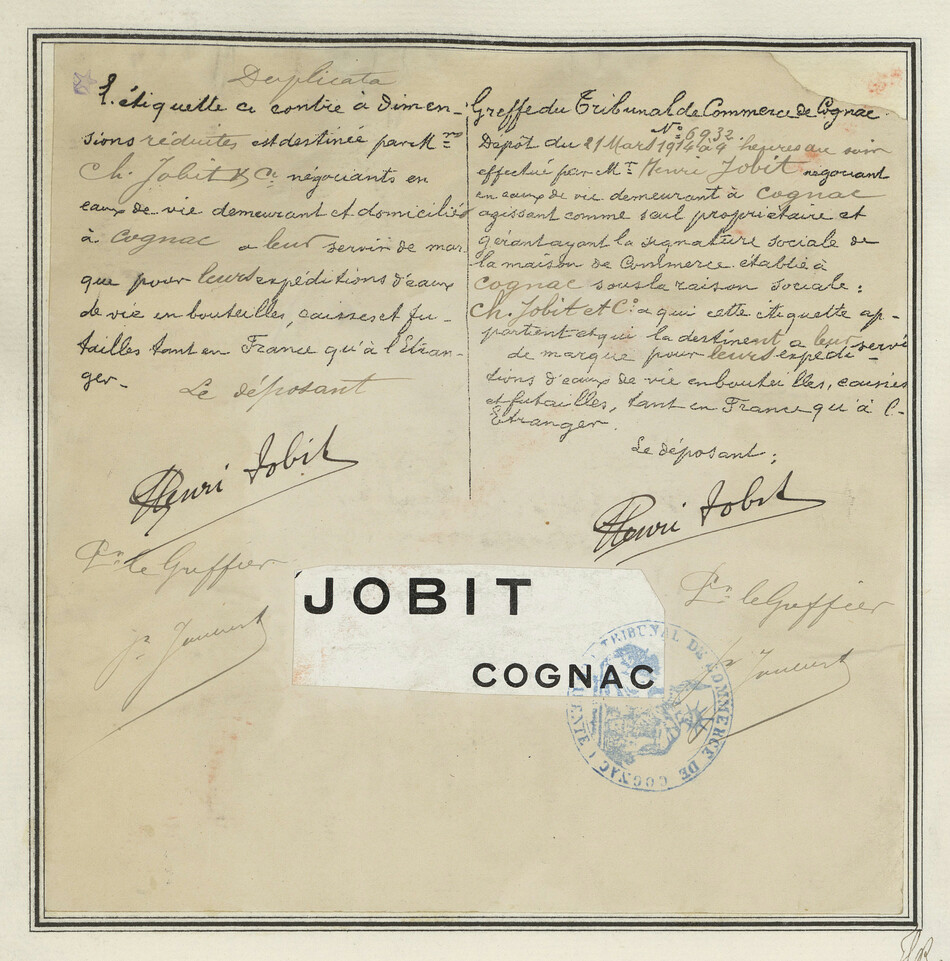 Duplicata
L'étiquette ci contre à dimen-
sions réduites est destinée par Mrs
Ch. Jobit & Cie négociants en
eaux de vie demeurant et domiciliés
à Cognac a leur servir de mar
que pour leurs expéditions d'eaux
de vie en bouteilles, caisses et fu-
tailles tant en France qu'à l'Etran-
ger-
Le déposant
Henri Jobit
Pr le Greffier
Greffe du Tribunal de Commerce de Cognac.
No 6932.
Dépôt du 21 Mars 1914 à 4 heures au soir
effectué par Mr Henri Jobit négociant
en eaux de vie demeurant à Cognac
agissant comme seul propriétaire et
gérant ayant la signature sociale de
la maison de Commerce établie à
Cognac sous la raison sociale:
Ch. Jobit et Co à qui cette étiquette ap-
partient et qui la destinent a leur servir
de marque pour leurs expédi-
tions d'eaux de vie en bouteilles, caisses
et futailles, tant en France qu'à l'-
Etranger.
Le déposant;
Henri Jobit
Pr le Greffier
JOBIT
COGNAC
TRIBUNAL DE COMMERCE DE COGNAC